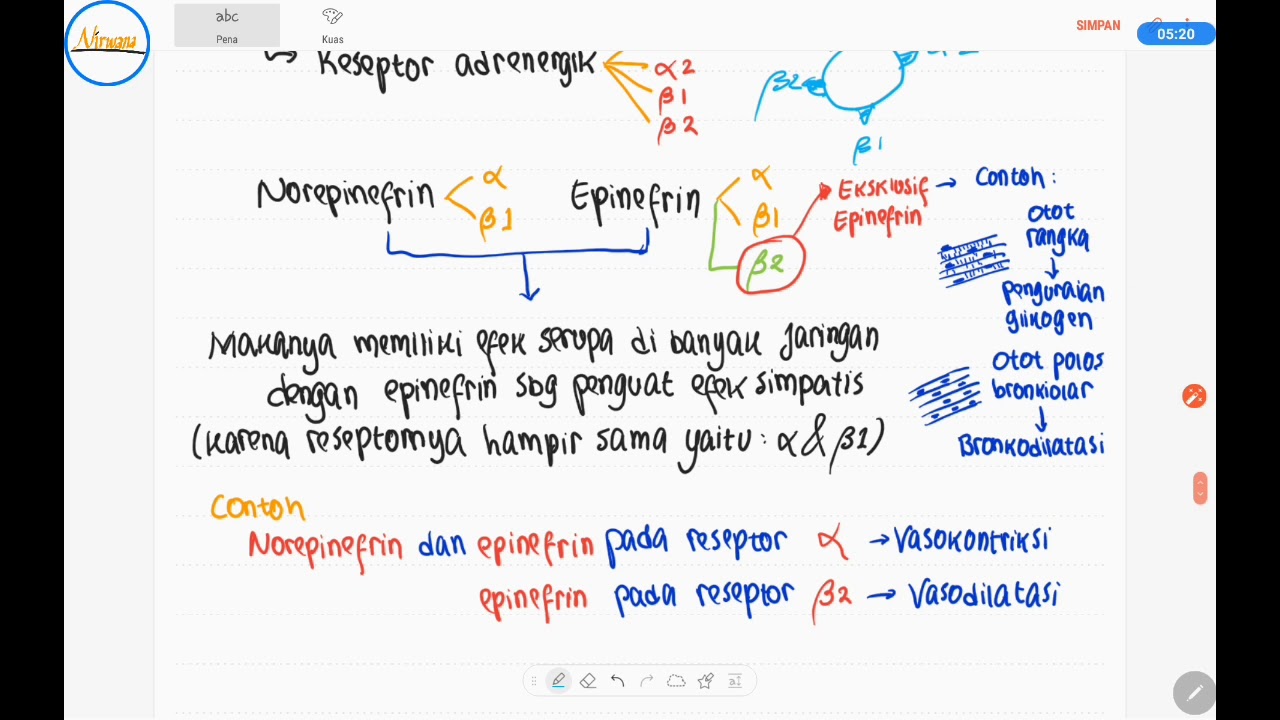 Nirwana
abc
Pena
Kuas
SIMPAN
05:20
↳ Reseptor adrenergik
α2
β1
β2
β2
β1
Norepinefrin
α
β1
Epinefrin
α
β1
β2
Eksklusif
Epinefrin
→ Contoh :
Otot
rangka
↓
penguraian
glikogen
Otot polos
bronkiolar
↓
Bronkodilatasi
Makanya memiliki efek serupa di banyak jaringan
dengan epinefrin sbg penguat efek simpatis
(karena reseptornya hampir sama yaitu : α & β1)
Contoh
Norepinefrin dan epinefrin pada reseptor α → Vasokontriksi
epinefrin pada reseptor β2 → Vasodilatasi